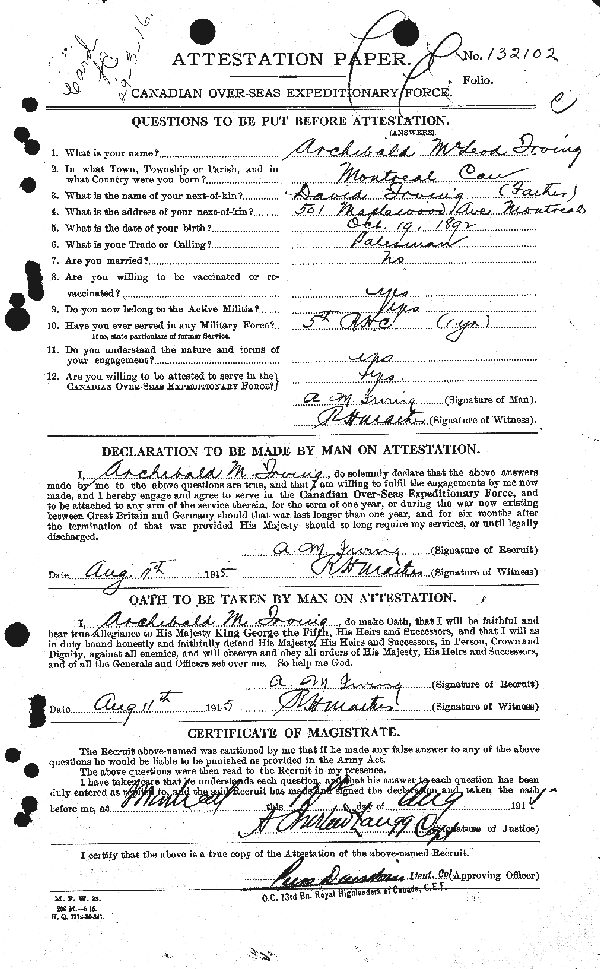 ATTESTATION PAPER.
No. 132102
Folio.
CANADIAN OVER-SEAS EXPEDITIONARY FORCE.
QUESTIONS TO BE PUT BEFORE ATTESTATION.
(ANSWERS)
1. What is your name? Archibald McLeod Irving
2. In what Town, Township or Parish, and in
what Country were you born? Montreal Can
3. What is the name of your next-of-kin? David Irving (Father)
4. What is the address of your next-of-kin? 501 Maplewood Ave Montreal
5. What is the date of your birth? Oct. 19, 1892
6. What is your Trade or Calling? Salesman
7. Are you married? no
8. Are you willing to be vaccinated or re-
vaccinated? yes
9. Do you now belong to the Active Militia? yes
10. Have you ever served in any Military Force? 5th RHC (1 yr)
If so, state particulars of former Service.
11. Do you understand the nature and terms of
your engagement? yes
12. Are you willing to be attested to serve in the
CANADIAN OVER-SEAS EXPEDITIONARY FORCE? yes
A M Irving (Signature of Man).
(Signature of Witness).
DECLARATION TO BE MADE BY MAN ON ATTESTATION.
I, Archibald M. Irving, do solemnly declare that the above answers
made by me to the above questions are true, and that I am willing to fulfil the engagements by me now
made, and I hereby engage and agree to serve in the Canadian Over-Seas Expeditionary Force, and
to be attached to any arm of the service therein, for the term of one year, or during the war now existing
between Great Britain and Germany should that war last longer than one year, and for six months after
the termination of that war provided His Majesty should so long require my services, or until legally
discharged.
A M Irving (Signature of Recruit)
Date Aug. 1915 (Signature of Witness)
OATH TO BE TAKEN BY MAN ON ATTESTATION.
I, Archibald M. Irving, do make Oath, that I will be faithful and
bear true Allegiance to His Majesty King George the Fifth, His Heirs and Successors, and that I will as
in duty bound honestly and faithfully defend His Majesty, His Heirs and Successors, in Person, Crown and
Dignity, against all enemies, and will observe and obey all orders of His Majesty, His Heirs and Successors,
and of all the Generals and Officers set over me. So help me God.
A M Irving (Signature of Recruit)
Date Aug 11th 1915 (Signature of Witness)
CERTIFICATE OF MAGISTRATE.
The Recruit above-named was cautioned by me that if he made any false answer to any of the above
questions he would be liable to be punished as provided in the Army Act.
The above questions were then read to the Recruit in my presence.
I have taken care that he understands each question, and that his answer to each question has been
duly entered as replied to, and the said Recruit has made and signed the declaration and taken the oath
before me, at Montreal this day of Aug 191
(Signature of Justice)
I certify that the above is a true copy of the Attestation of the above-named Recruit.
Lieut. Col (Approving Officer)
O.C. 73rd Bn. Royal Highlanders of Canada, C.E.F.
M. F. W. 23.